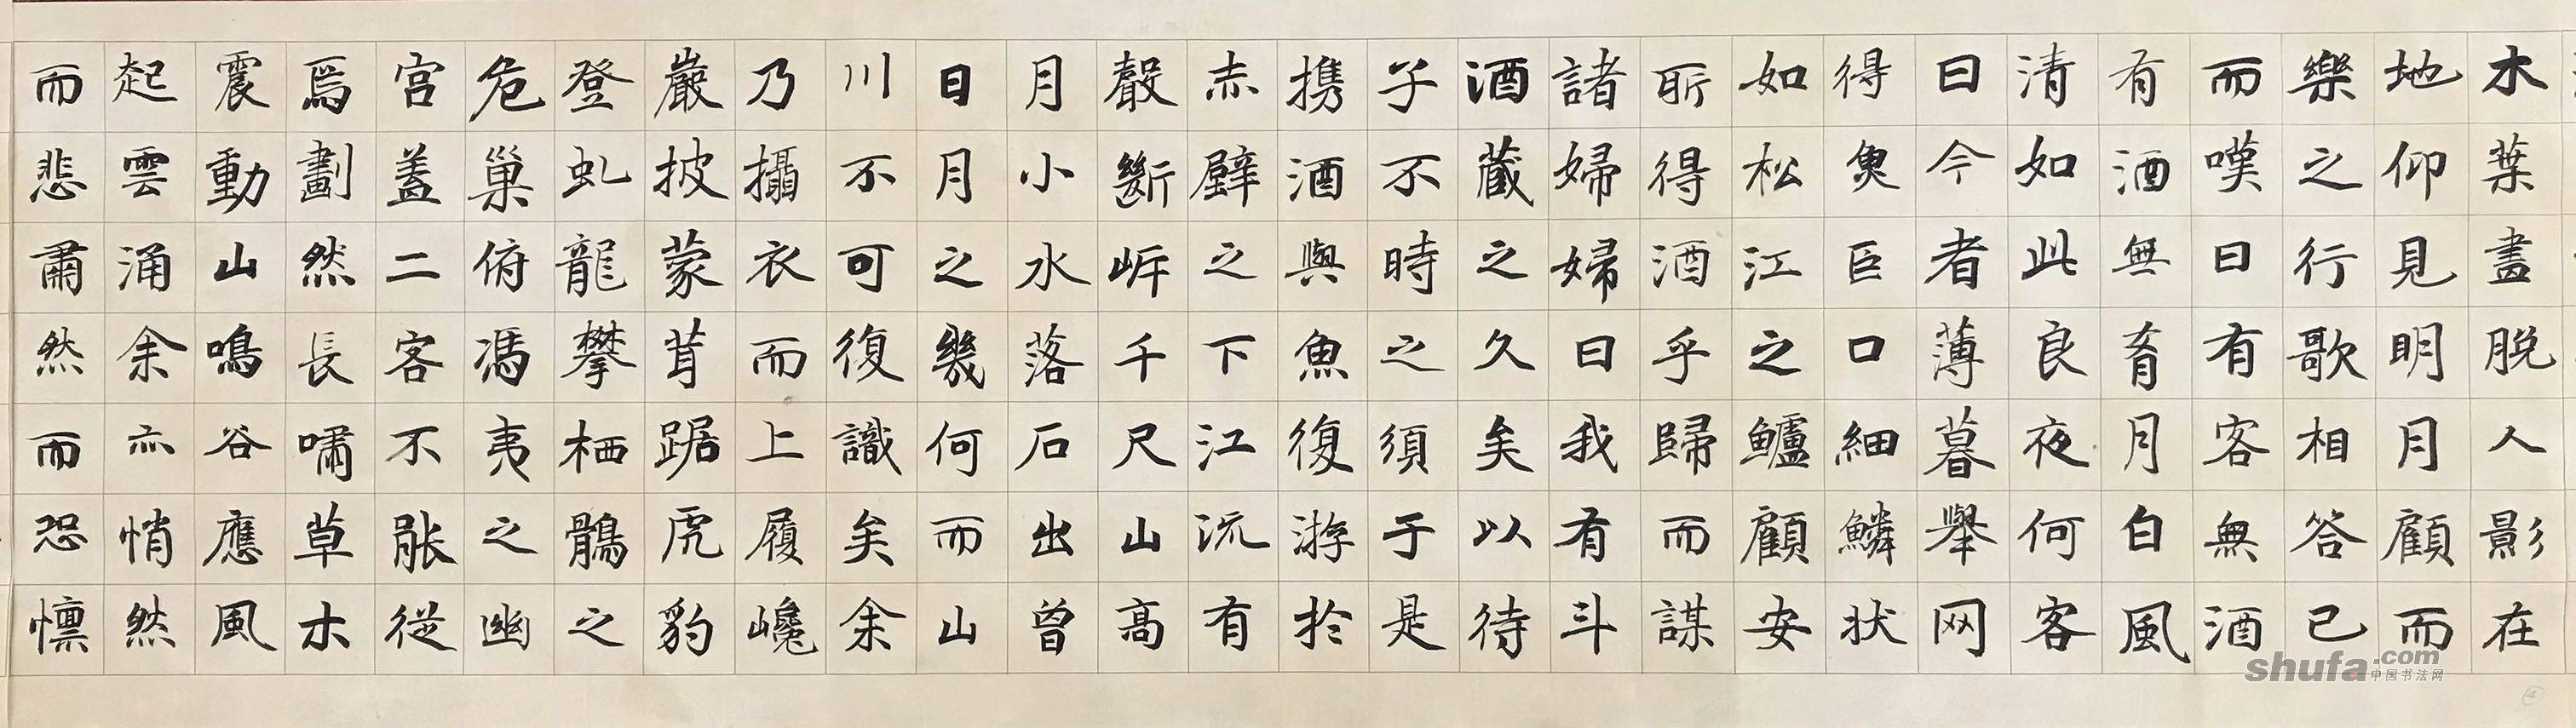 木葉盡脫人影在
地仰見明月顧而
樂之行歌相答已
而嘆曰有客無酒
有酒無肴月白風
清如此良夜何客
曰今者薄暮舉网
得魚巨口細鱗狀
如松江之鱸顧安
所得酒乎歸而謀
諸婦婦曰我有斗
酒藏之久矣以待
子不時之須于是
携酒與魚復游於
赤壁之下江流有
聲斷岸千尺山高
月小水落石出曾
日月之幾何而山
川不可復識矣余
乃攝衣而上履巉
巖披蒙茸踞虎豹
登虬龍攀栖鶻之
危巢俯馮夷之幽
宮蓋二客不能從
焉劃然長嘯草木
震動山鳴谷應風
起雲涌余亦悄然
而悲肅然而恐懍
shufa.com
中国书法网